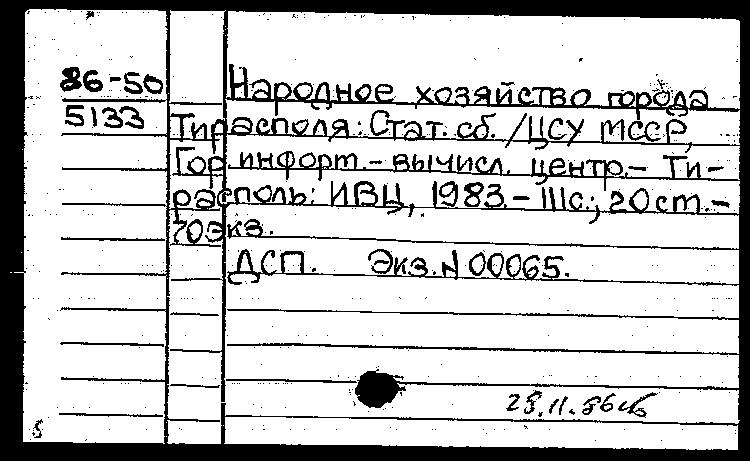 86-50
5133
Народное хозяйство города
Тирасполя: Стат. сб. / ЦСУ МССР,
Гор. информ.-вычисл. центр.- Ти-
располь: ИВЦ, 1983.- 111с.; 20 ст.-
70 экз.
ДСП. Экз. N 00065.
28.11.86
8